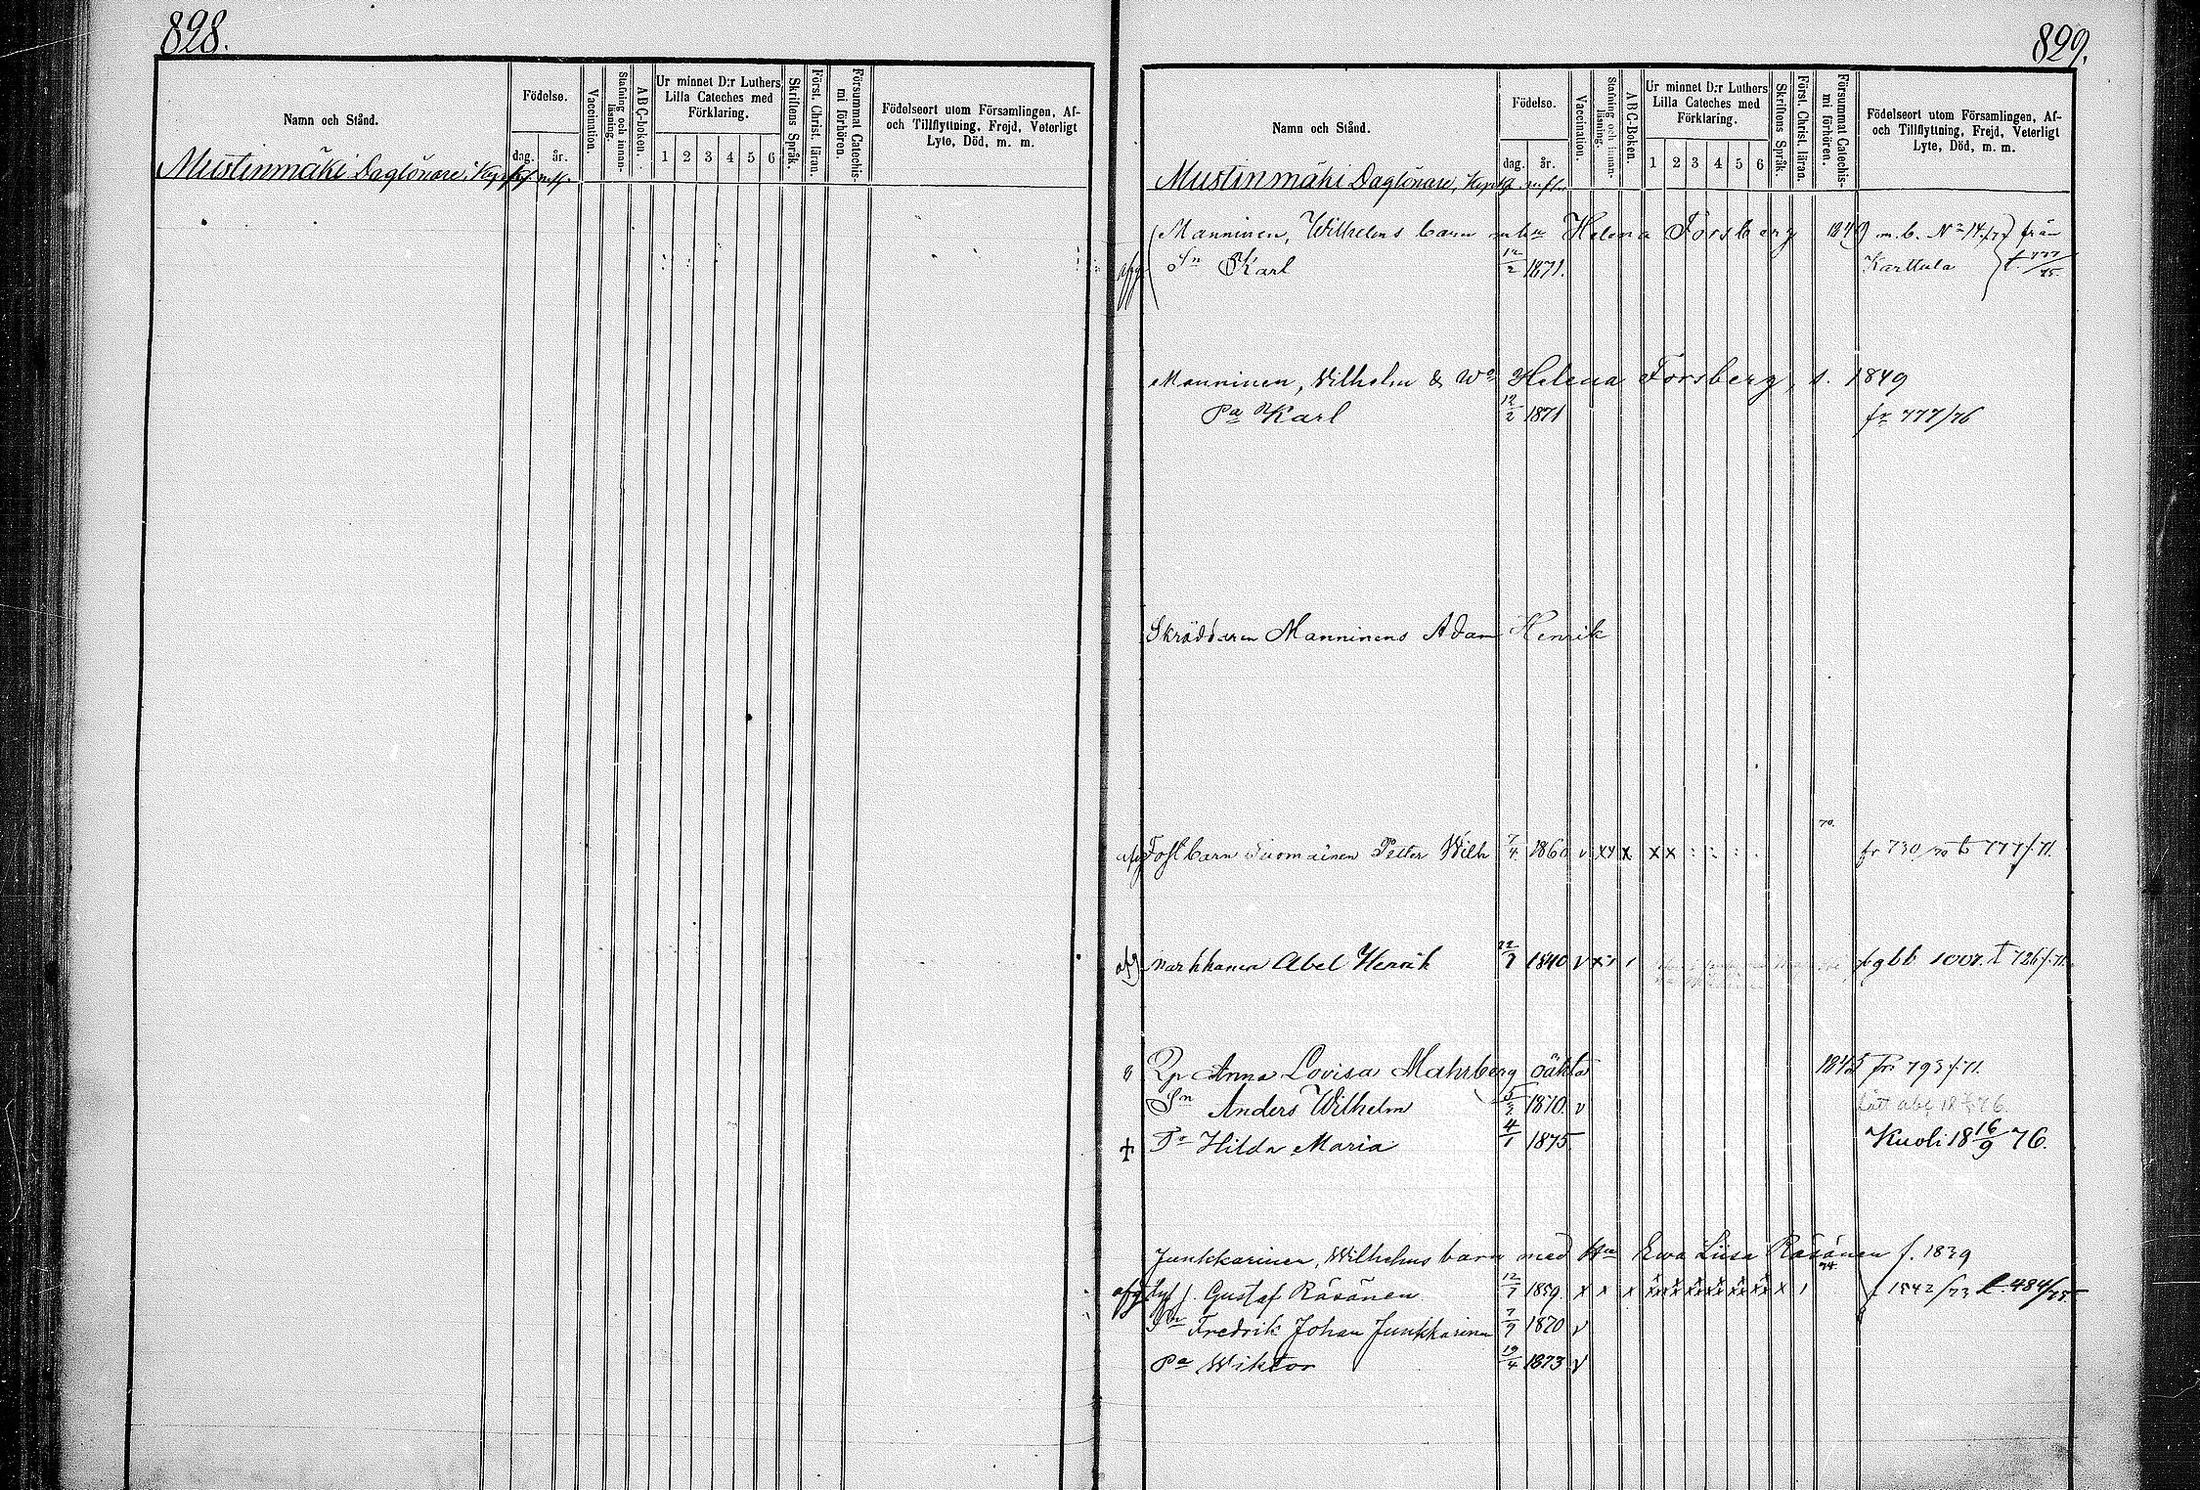 828.
Namn och Stånd.
Födelse.
dag. år.
Vaccination.
Stafning och innan-läsning.
A B C-boken.
Ur minnet D:r Luthers Lilla Cateches med Förklaring.
1 2 3 4 5 6
Skriftens Språk.
Först. Christ. läran.
Försummat Catechis-mi förhören.
Födelseort utom Församlingen, Af- och Tillflyttning, Frejd, Veterligt Lyte, Död, m. m.
Mustinmäki Daglönare,
829.
Namn och Stånd.
Födelse.
dag. år.
Vaccination.
Stafning och innan-läsning.
A B C-Boken.
Ur minnet D:r Luthers Lilla Cateches med Förklaring.
1 2 3 4 5 6
Skriftens Språk.
Först. Christ. läran.
Försummat Catechis-mi förhören.
Födelseort utom Församlingen, Af- och Tillflyttning, Frejd, Veterligt Lyte, Död, m. m.
Mustinmäki Daglönare,
Manninen, Wilhelms barn Helena Forsberg 1849 m. b. No 14 från
afg Sn Karl 12/2 1871. Karttula t. 777/75
Manninen, Wilhelm & Wa Helena Forsberg, s. 1849
Pa Karl 12/2 1871 fr 777/76
Skräddaren Manninens Adam Henrik
70.
afg Fostbarn Tuomainen Petter Wilh 7/4 1860 v x x x x x fr 730/70 t. 777/71.
afg Markkanen Abel Henrik 22/7 1840 v x 1007. t 726/71.
Anna Lovisa Mahrberg oäkta 1845 fr 793/71.
Sn Anders Wilhelm 5/2 1870. v
† Dr Hilda Maria 4/1 1875 Kuoli 18 16/9 76.
Junkkarinen, Wilhelms barn med Hu Ewa Liisa Räsänen f. 1839
74
afg Gustaf Räsänen 12/7 1859 x x x x x x x x x x 1 1542/73 t. 484/75
Sn Fredrik Johan Junkkarinen 7/9 1870 v
Pa Wiktor 19/4 1873 v